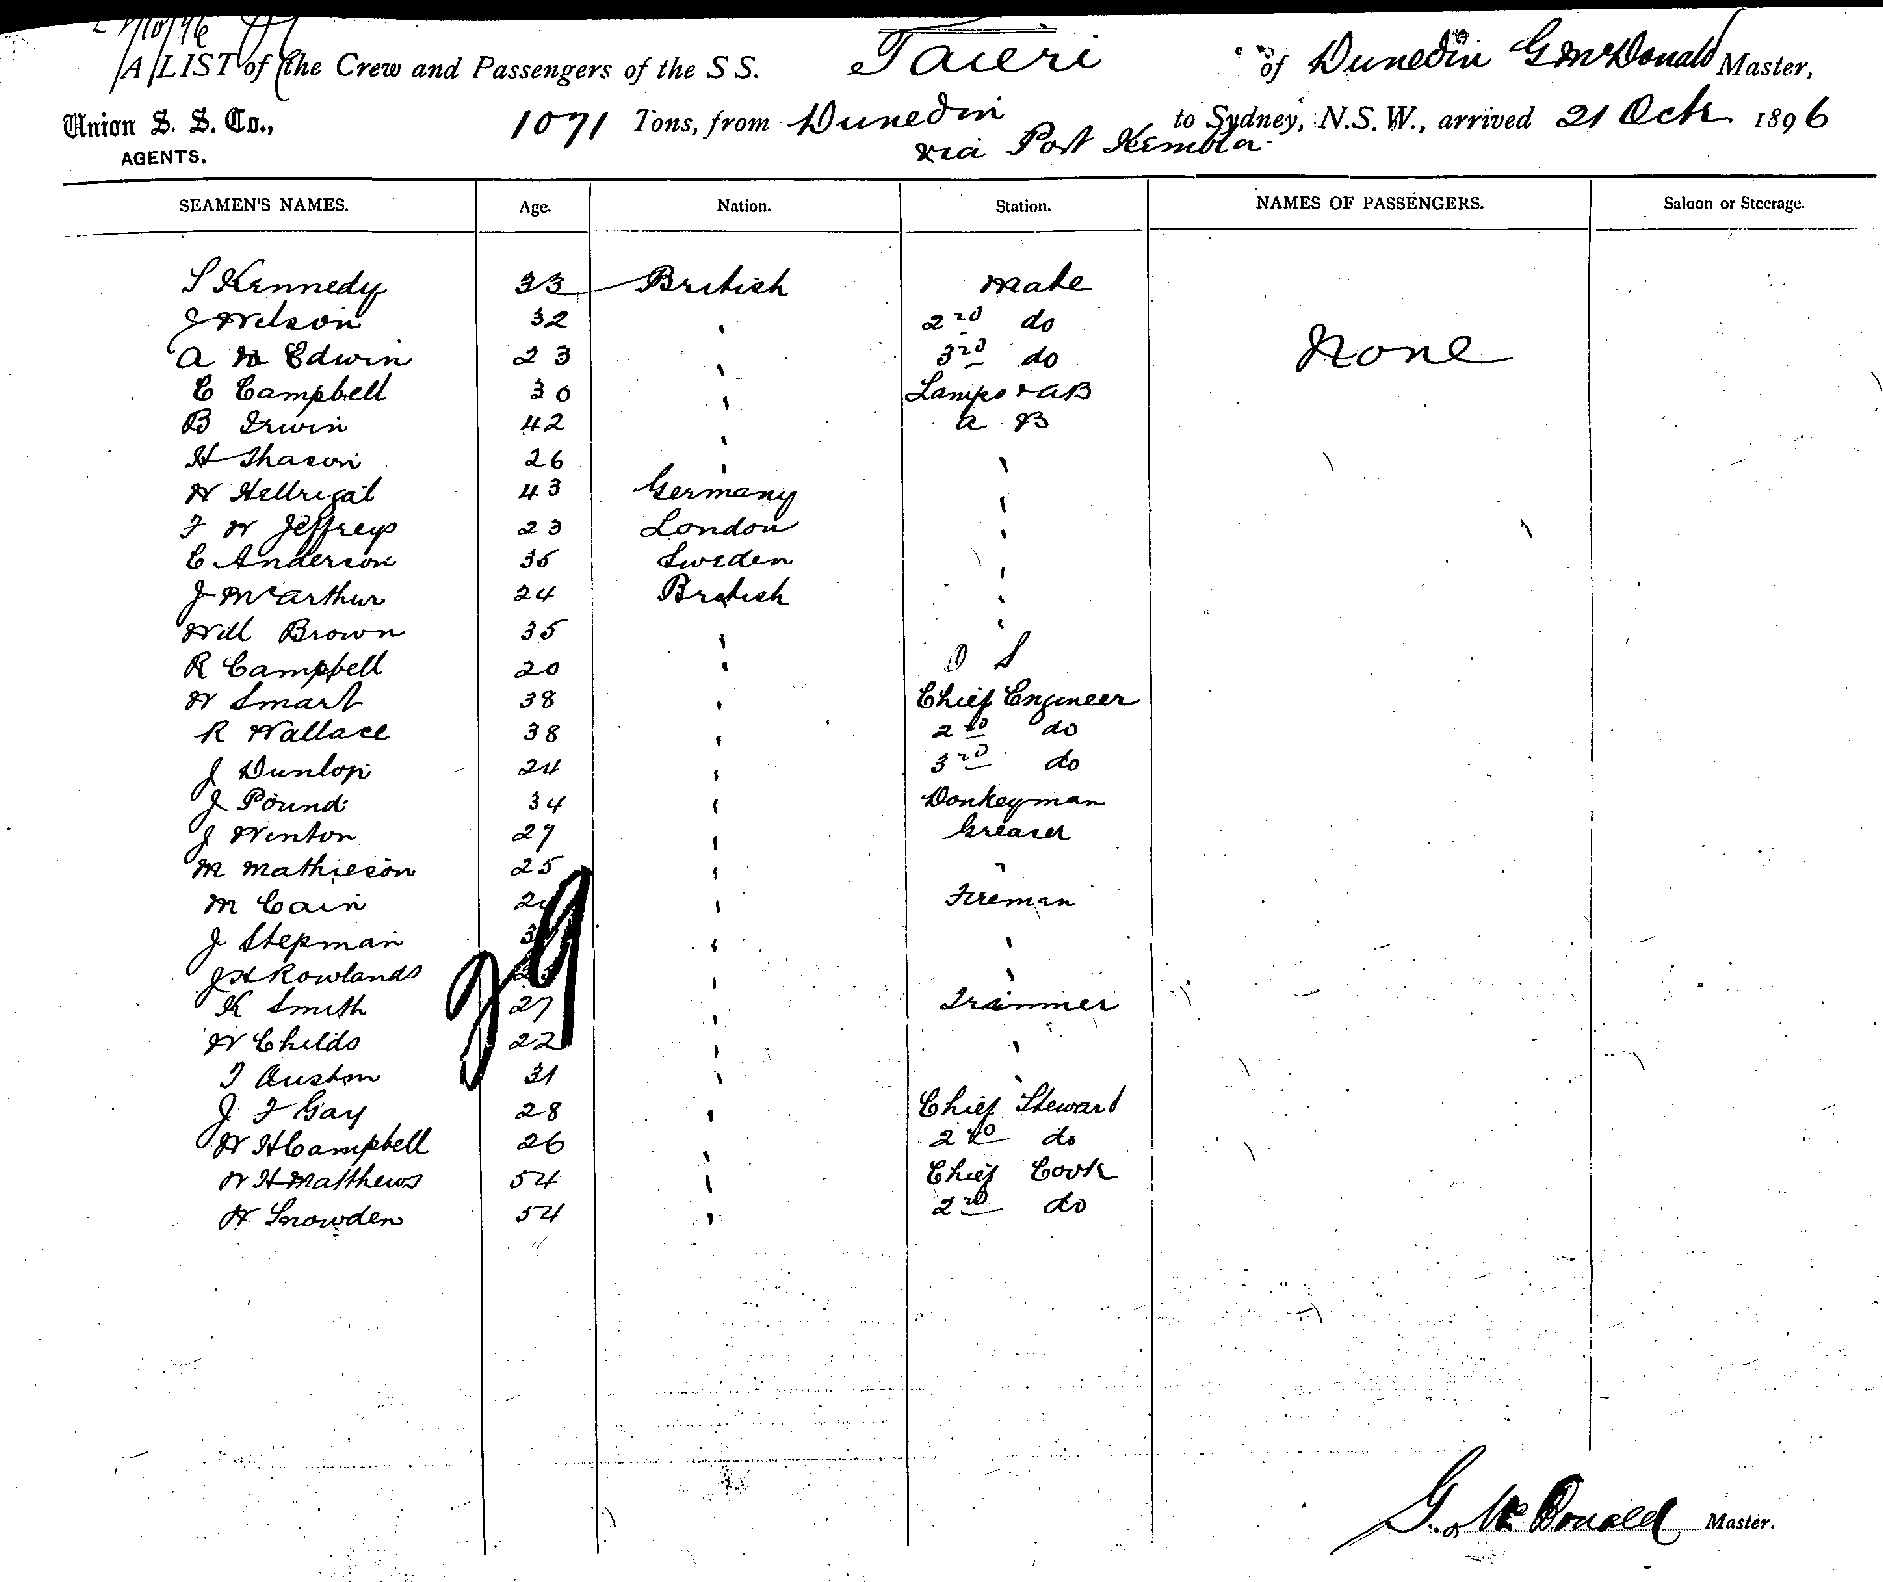 21/10/96
A LIST of the Crew and Passengers of the S S. Taieri of Dunedin G McDonald Master,
Union S. S. Co., 1071 Tons, from Dunedin to Sydney, N.S.W., arrived 21 Oct 1896
AGENTS. via Port Kembla
SEAMEN'S NAMES. Age. Nation. Station. NAMES OF PASSENGERS. Saloon or Steerage.
S Kennedy 33 British Mate
J Wilson 32 " 2nd do
A M Edwin 23 " 3rd do None
C Campbell 30 " Lamps & AB
B Irwin 42 " A B
H Thason 26 " "
W Hellrigal 43 Germany "
F W Jeffreys 23 London "
C Anderson 35 Sweden "
J McArthur 24 British "
Will Brown 35 " "
R Campbell 20 " O S
W Smart 38 " Chief Engineer
R Wallace 38 " 2nd do
J Dunlop 24 " 3rd do
J Pound 34 " Donkeyman
J Winton 27 " Greaser
M Mathieson 25 " "
M Cain " Fireman
J Stepman " "
J H Rowlands " "
K Smith 27 " Trimmer
W Childs 22 " "
T Auston 31 " "
J F Gay 28 " Chief Steward
W H Campbell 26 " 2nd do
W H Matthews 54 " Chief Cook
H Snowden 54 " 2nd do
29
G. McDonald Master.